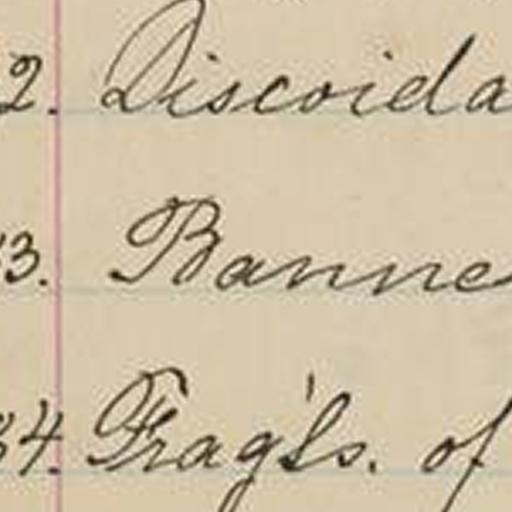 2. Discoida
33. Banne
34. Frag'ts. of